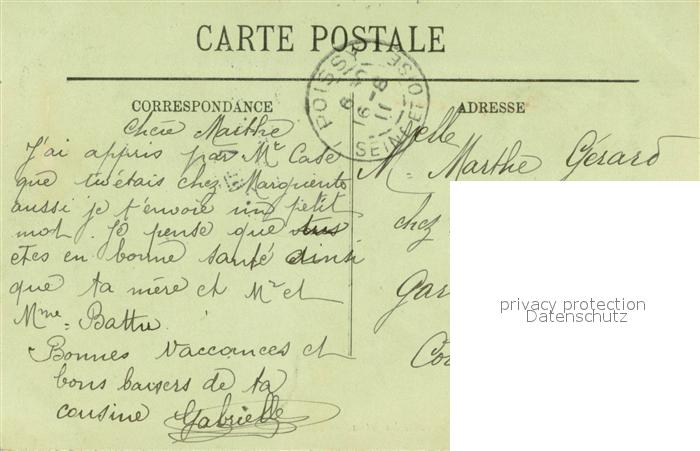 CARTE POSTALE
CORRESPONDANCE
Chère Marthe
J'ai appris par Mr Case
que tu étais chez Marguerite
aussi je t'envoie un petit
mot. Je pense que tus
etes en bonne santé ainsi
que ta mère et Mr et
Mme Battu.
Bonnes vaccances et
bons baisers de ta
cousine Gabrielle
POISSY
16-8
11
SEINE-ET-OISE
ADRESSE
Melle Marthe Gérard
chez
Gar
Co
privacy protection
Datenschutz